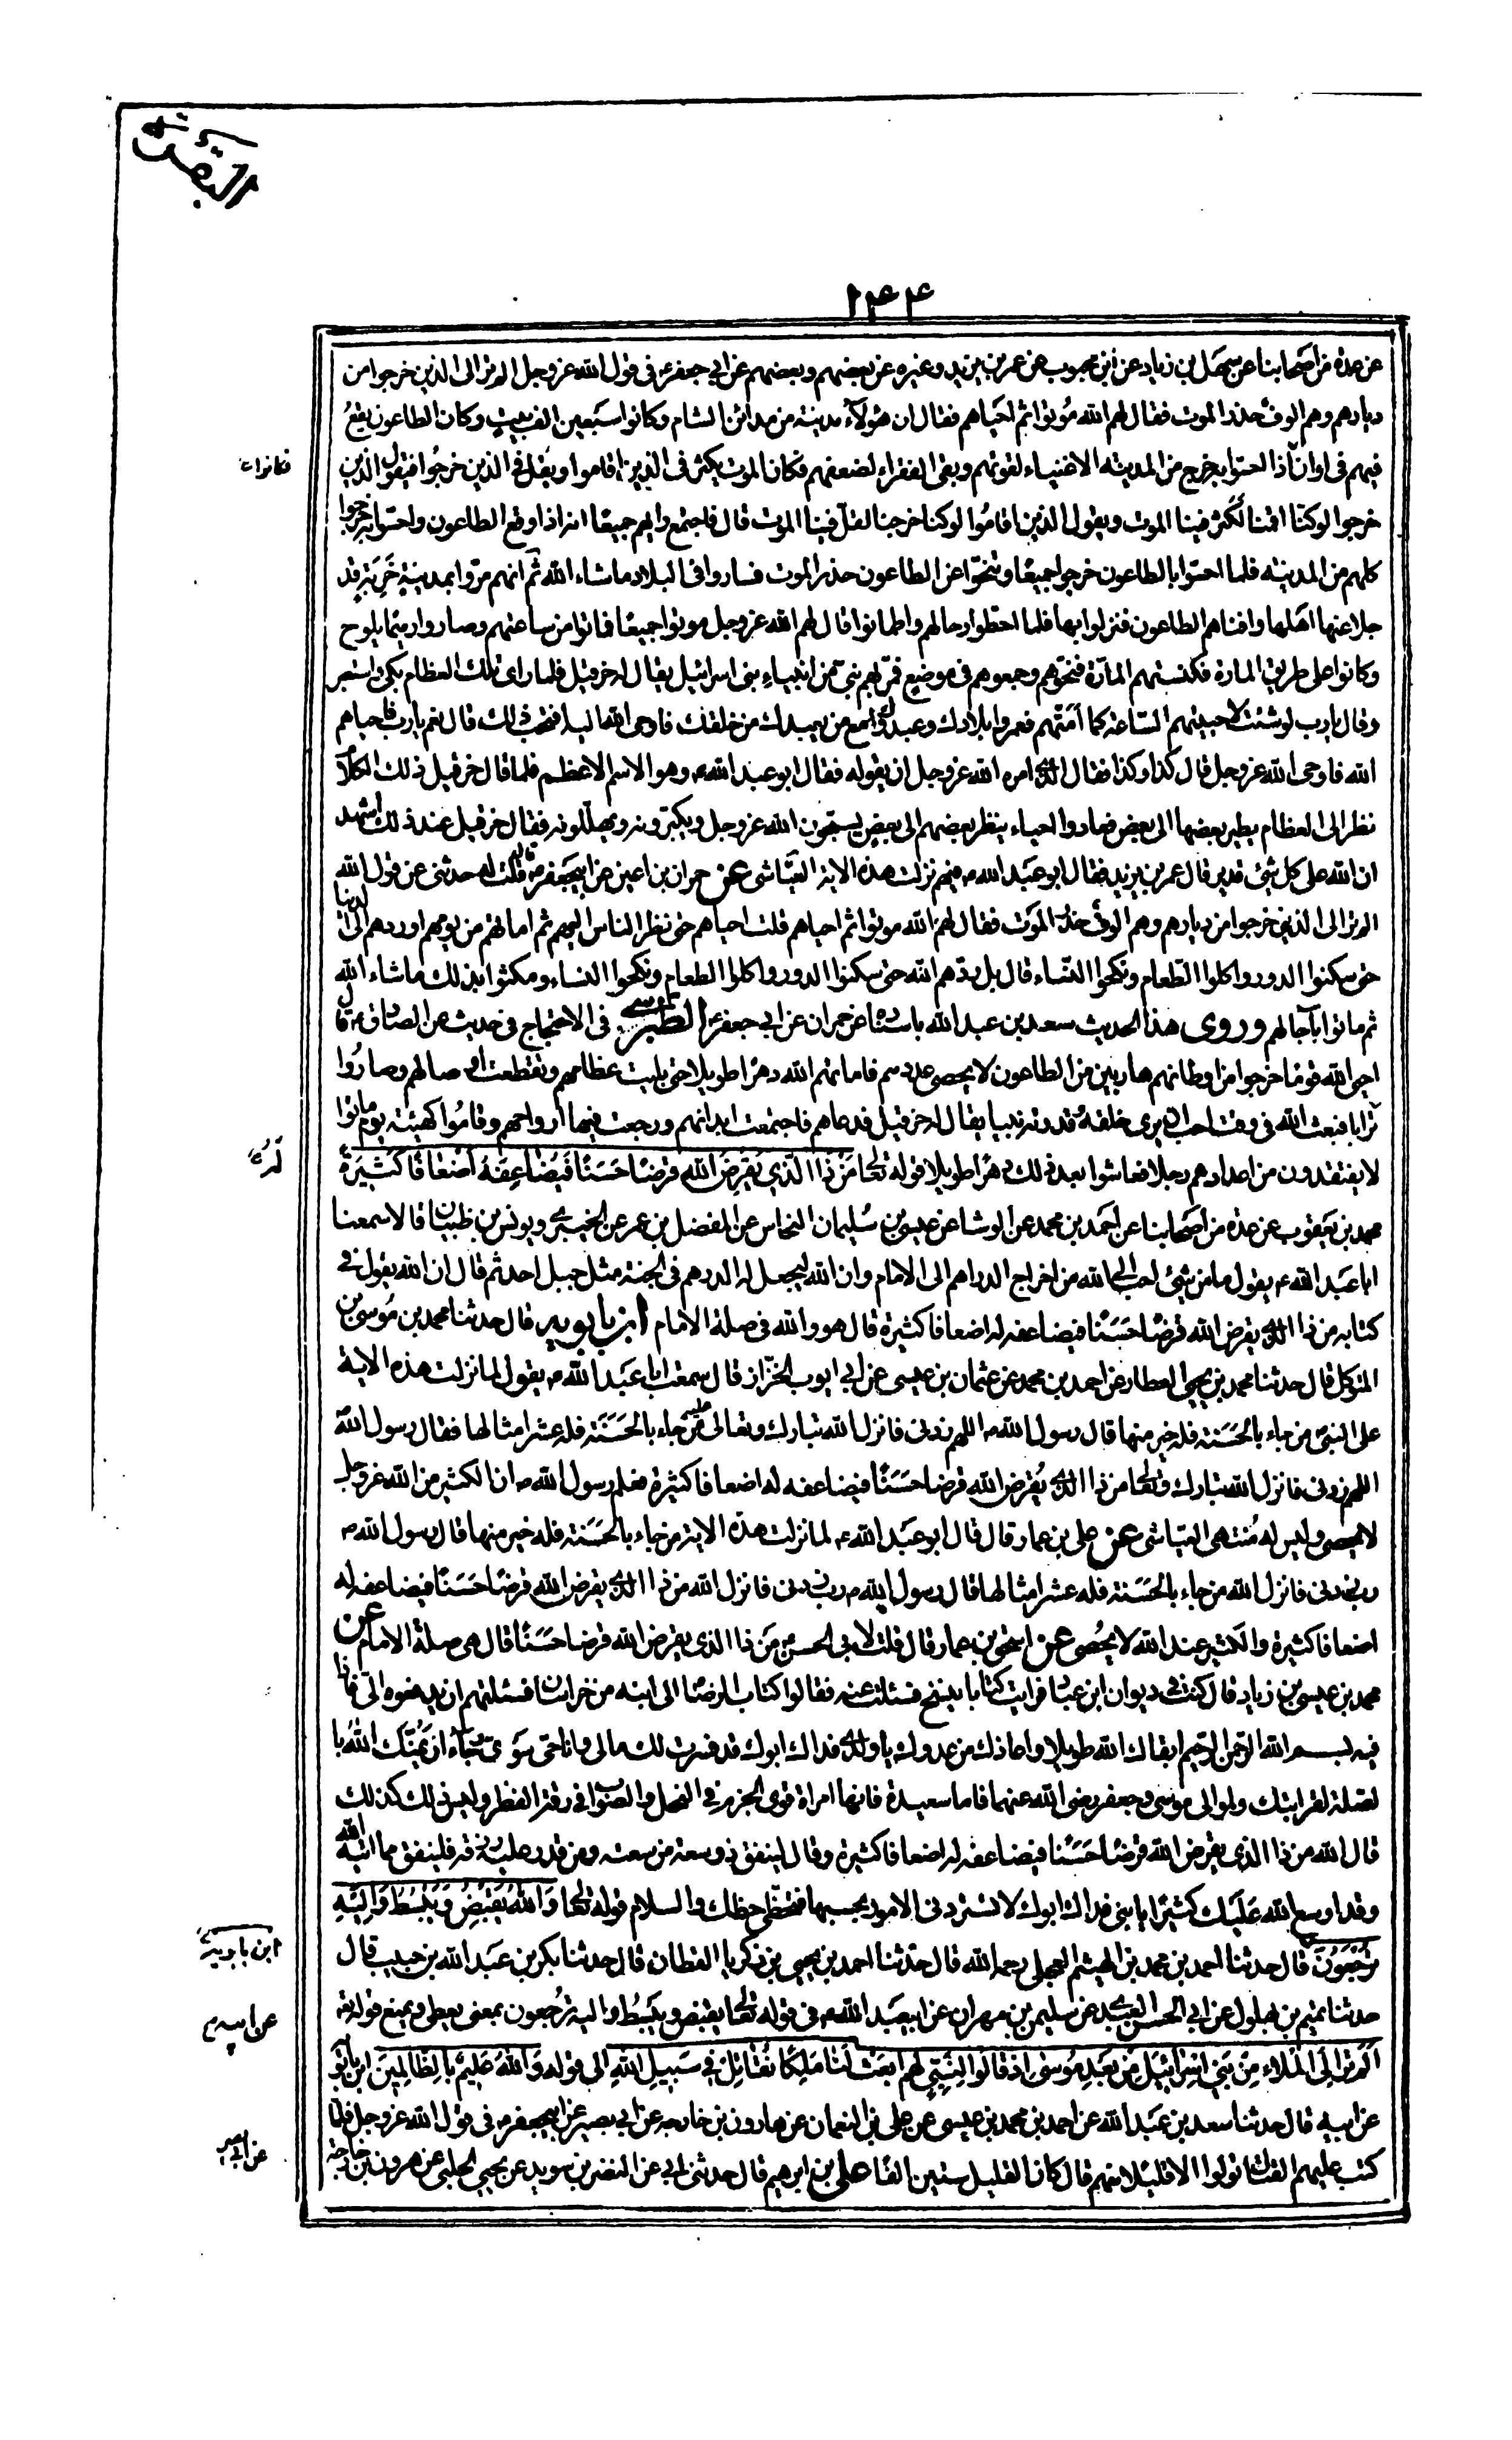 البقرة
١٤٤
عن عدة من اصحابنا عن سهل بن زياد عن ابن محبوب عن عمر بن يزيد وغيره عن بعضهم وبعضهم عن ابي جعفر ع في قول الله عز وجل الم تر الى الذين خرجوا من
ديارهم وهم الوف حذر الموت فقال لهم الله موتوا ثم احياهم فقال ان هؤلاء مدينة من مدائن الشام وكانوا سبعين الف بيت وكان الطاعون يقع
فيهم في اوان اذا احسوا به خرج من المدينة الاغنياء لقوتهم وبقى الفقراء لضعفهم فكان الموت يكثر في الذين اقاموا ويقل في الذين خرجوا فيقول الذين
فكانوا
خرجوا لو كنا اقمنا لكثر فينا الموت ويقول الذين اقاموا لو كنا خرجنا لقل فينا الموت قال فاجتمع رايهم جميعا انه اذا وقع الطاعون واحسوا به خرجوا
كلهم من المدينة فلما احسوا بالطاعون خرجوا جميعا وتنحوا عن الطاعون حذر الموت فساروا في البلاد ما شاء الله ثم انهم مروا بمدينة خربة قد
جلا عنها اهلها وافناهم الطاعون فنزلوا بها فلما احطوا رحالهم واطمانوا قال لهم الله عز وجل موتوا جميعا فماتوا من ساعتهم وصاروا رميما يلوح
وكانوا على طريق المارة فكنستهم المارة فنحوهم وجمعوهم في موضع فمر بهم نبي من انبياء بني اسرائيل يقال له حزقيل فلما راى تلك العظام بكى واستعبر
وقال يا رب لو شئت لاحييتهم الساعة كما امتهم فعمروا بلادك وعبدوك مع من يعبدك من خلقك فاوحى الله اليه افتحب ذلك قال نعم يا رب فاحياهم
الله فاوحى الله عز وجل قال كذا وكذا فقال الذي امره الله عز وجل ان يقوله فقال ابو عبد الله ع وهو الاسم الاعظم فلما قال حزقيل ذلك الكلام
نظر الى العظام يطير بعضها الى بعض فعادوا احياء ينظر بعضهم الى بعض يسبحون الله عز وجل ويكبرونه ويهللونه فقال حزقيل عند ذلك اشهد
ان الله على كل شئ قدير قال عمر بن يزيد فقال ابو عبد الله ع فيهم نزلت هذه الاية العياشي عن حمران بن اعين عن ابيجعفر ع قال قلت له حدثني عن قول الله
الم تر الى الذين خرجوا من ديارهم وهم الوف حذر الموت فقال لهم الله موتوا ثم احياهم قلت احياهم حتى نظر الناس اليهم ثم اماتهم من يومهم او ردهم الى الدنيا
حتى سكنوا الدور واكلوا الطعام ونكحوا النساء قال بل ردهم الله حتى سكنوا الدور واكلوا الطعام ونكحوا النساء ومكثوا بذلك ما شاء الله
ثم ماتوا باجالهم وروى هذا الحديث سعد بن عبد الله باسناده عن حمران عن ابي جعفر ع الطبرسي في الاحتجاج في حديث عن الصادق ع قال
احيى الله قوما خرجوا من اوطانهم هاربين من الطاعون لا يحصى عددهم فاماتهم الله دهرا طويلا حتى بليت عظامهم وتقطعت اوصالهم وصاروا
ترابا فبعث الله في وقت احب ان يرى خلقه قدرته نبيا يقال له حزقيل فدعاهم فاجتمعت ابدانهم ورجعت فيها ارواحهم وقاموا كهيئة يوم ماتوا
لا يفتقدون من اعدادهم رجلا فعاشوا بعد ذلك دهرا طويلا قوله تعالى مَنْ ذَا الَّذي يُقْرِضُ اللهَ قَرْضًا حَسَنًا فَيُضَاعِفَهُ أَضْعَافًا كَثيرَةً
لَهُ
محمد بن يعقوب عن عدة من اصحابنا عن احمد بن محمد عن الوشا عن عيسى بن سليمان النحاس عن المفضل بن عمر عن الخيبري ويونس بن ظبيان قالا سمعنا
ابا عبد الله ع يقول ما من شئ احب الى الله من اخراج الدراهم الى الامام وان الله ليجعل له الدرهم في الجنة مثل جبل احد ثم قال ان الله يقول في
كتابه من ذا الذي يقرض الله قرضا حسنا فيضاعفه له اضعافا كثيرة قال هو والله في صلة الامام ابن بابويه قال حدثنا محمد بن موسى بن
المتوكل قال حدثنا محمد بن يحيى العطار عن احمد بن محمد عن عثمان بن عيسى عن ابي ايوب الخزاز قال سمعت ابا عبد الله ع يقول لما نزلت هذه الاية
على النبي من جاء بالحسنة فله خير منها قال رسول الله ص اللهم زدني فانزل الله تبارك وتعالى من جاء بالحسنة فله عشر امثالها فقال رسول الله
اللهم زدني فانزل الله تبارك وتعالى من ذا الذي يُقرض الله قرضا حسنا فيضاعفه له اضعافا كثيرة فعلم رسول الله ص ان الكثير من الله عز وجل
لا يحصى وليس له منتهى العياشي عن علي بن عمار قال قال ابو عبد الله ع لما نزلت هذه الاية من جاء بالحسنة فله خير منها قال رسول الله ص
رب زدني فانزل الله من جاء بالحسنة فله عشر امثالها قال رسول الله ص رب زدني فانزل الله من ذا الذي يقرض الله قرضا حسنا فيضاعفه له
اضعافا كثيرة والكثير عند الله لا يحصى عن اسحق بن عمار قال قلت لابي الحسن ع من ذا الذي يقرض الله قرضا حسنا قال هي صلة الامام عن
محمد بن عيسى بن زياد قال كنت في ديوان ابن عباد فرايت كتابا ينسخ فسئلت عنه فقالوا كتاب الرضا الى ابنه من خراسان فسئلتهم ان يدفعوه الى فاذا
فيه بسم الله الرحمن الرحيم ابقاك الله طويلا واعاذك من عدوك يا ولدي فداك ابوك قد فسرت لك مالي وانا حي سوي رجاء ان يمنك الله با
لصلة لقرابتك ولموالي موسى وجعفر رضي الله عنهما فاما سعيدة فانها امراة قوى الحزم في النحل والصواب في رقة الفطر وليس ذلك كذلك
قال الله من ذا الذي يقرض الله قرضا حسنا فيضاعفه له اضعافا كثيرة وقال لينفق ذو سعة من سعته ومن قدر عليه رزقه فلينفق مما اتيه الله
وقد اوسع الله عليك كثيرا يا بني فداك ابوك لا تستر دوني الامور بحسبها فتخطئ حظك والسلام قوله تعالى وَاللهُ يَقْبِضُ وَيَبْسُطُ وَإِلَيْهِ
تُرْجَعُونَ قال حدثنا احمد بن محمد بن الهيثم العجلي رحمه الله قال حدثنا احمد بن يحيى بن زكريا القطان قال حدثنا بكر بن عبد الله بن حبيب قال
ابن بابويه
حدثنا تميم بن بهلول عن ابي الحسن العبدي عن سليمن بن مهران عن ابيعبد الله ع في قوله تعالى يقبض ويبسط واليه ترجعون بمعنى يعطي ويمنع قوله تعالى
عن ابيه
أَلَمْ تَرَ إِلَى الْمَلَاءِ مِنْ بَنِي إِسْرَائِيلَ مِنْ بَعْدِ مُوسَى إِذْ قَالُوا لِنَبِيٍّ لَهُمُ ابْعَثْ لَنَا مَلِكًا نُقَاتِلْ فِي سَبِيلِ اللهِ الى قوله وَاللهُ عَلِيمٌ بِالظَّالِمِينَ ابن بابويه
عن ابيه قال حدثنا سعد بن عبد الله عن احمد بن محمد بن عيسى عن علي بن النعمان عن هارون بن خارجه عن ابي بصير عن ابيجعفر ع في قول الله عز وجل فلما
كتب عليهم القتال تولوا الا قليلا منهم قال كان القليل ستين الفا علي بن ابرهيم قال حدثني ابي عن النضر بن سويد عن يحيى الحلبي عن هرون بن خارجة
عن ابي بصير